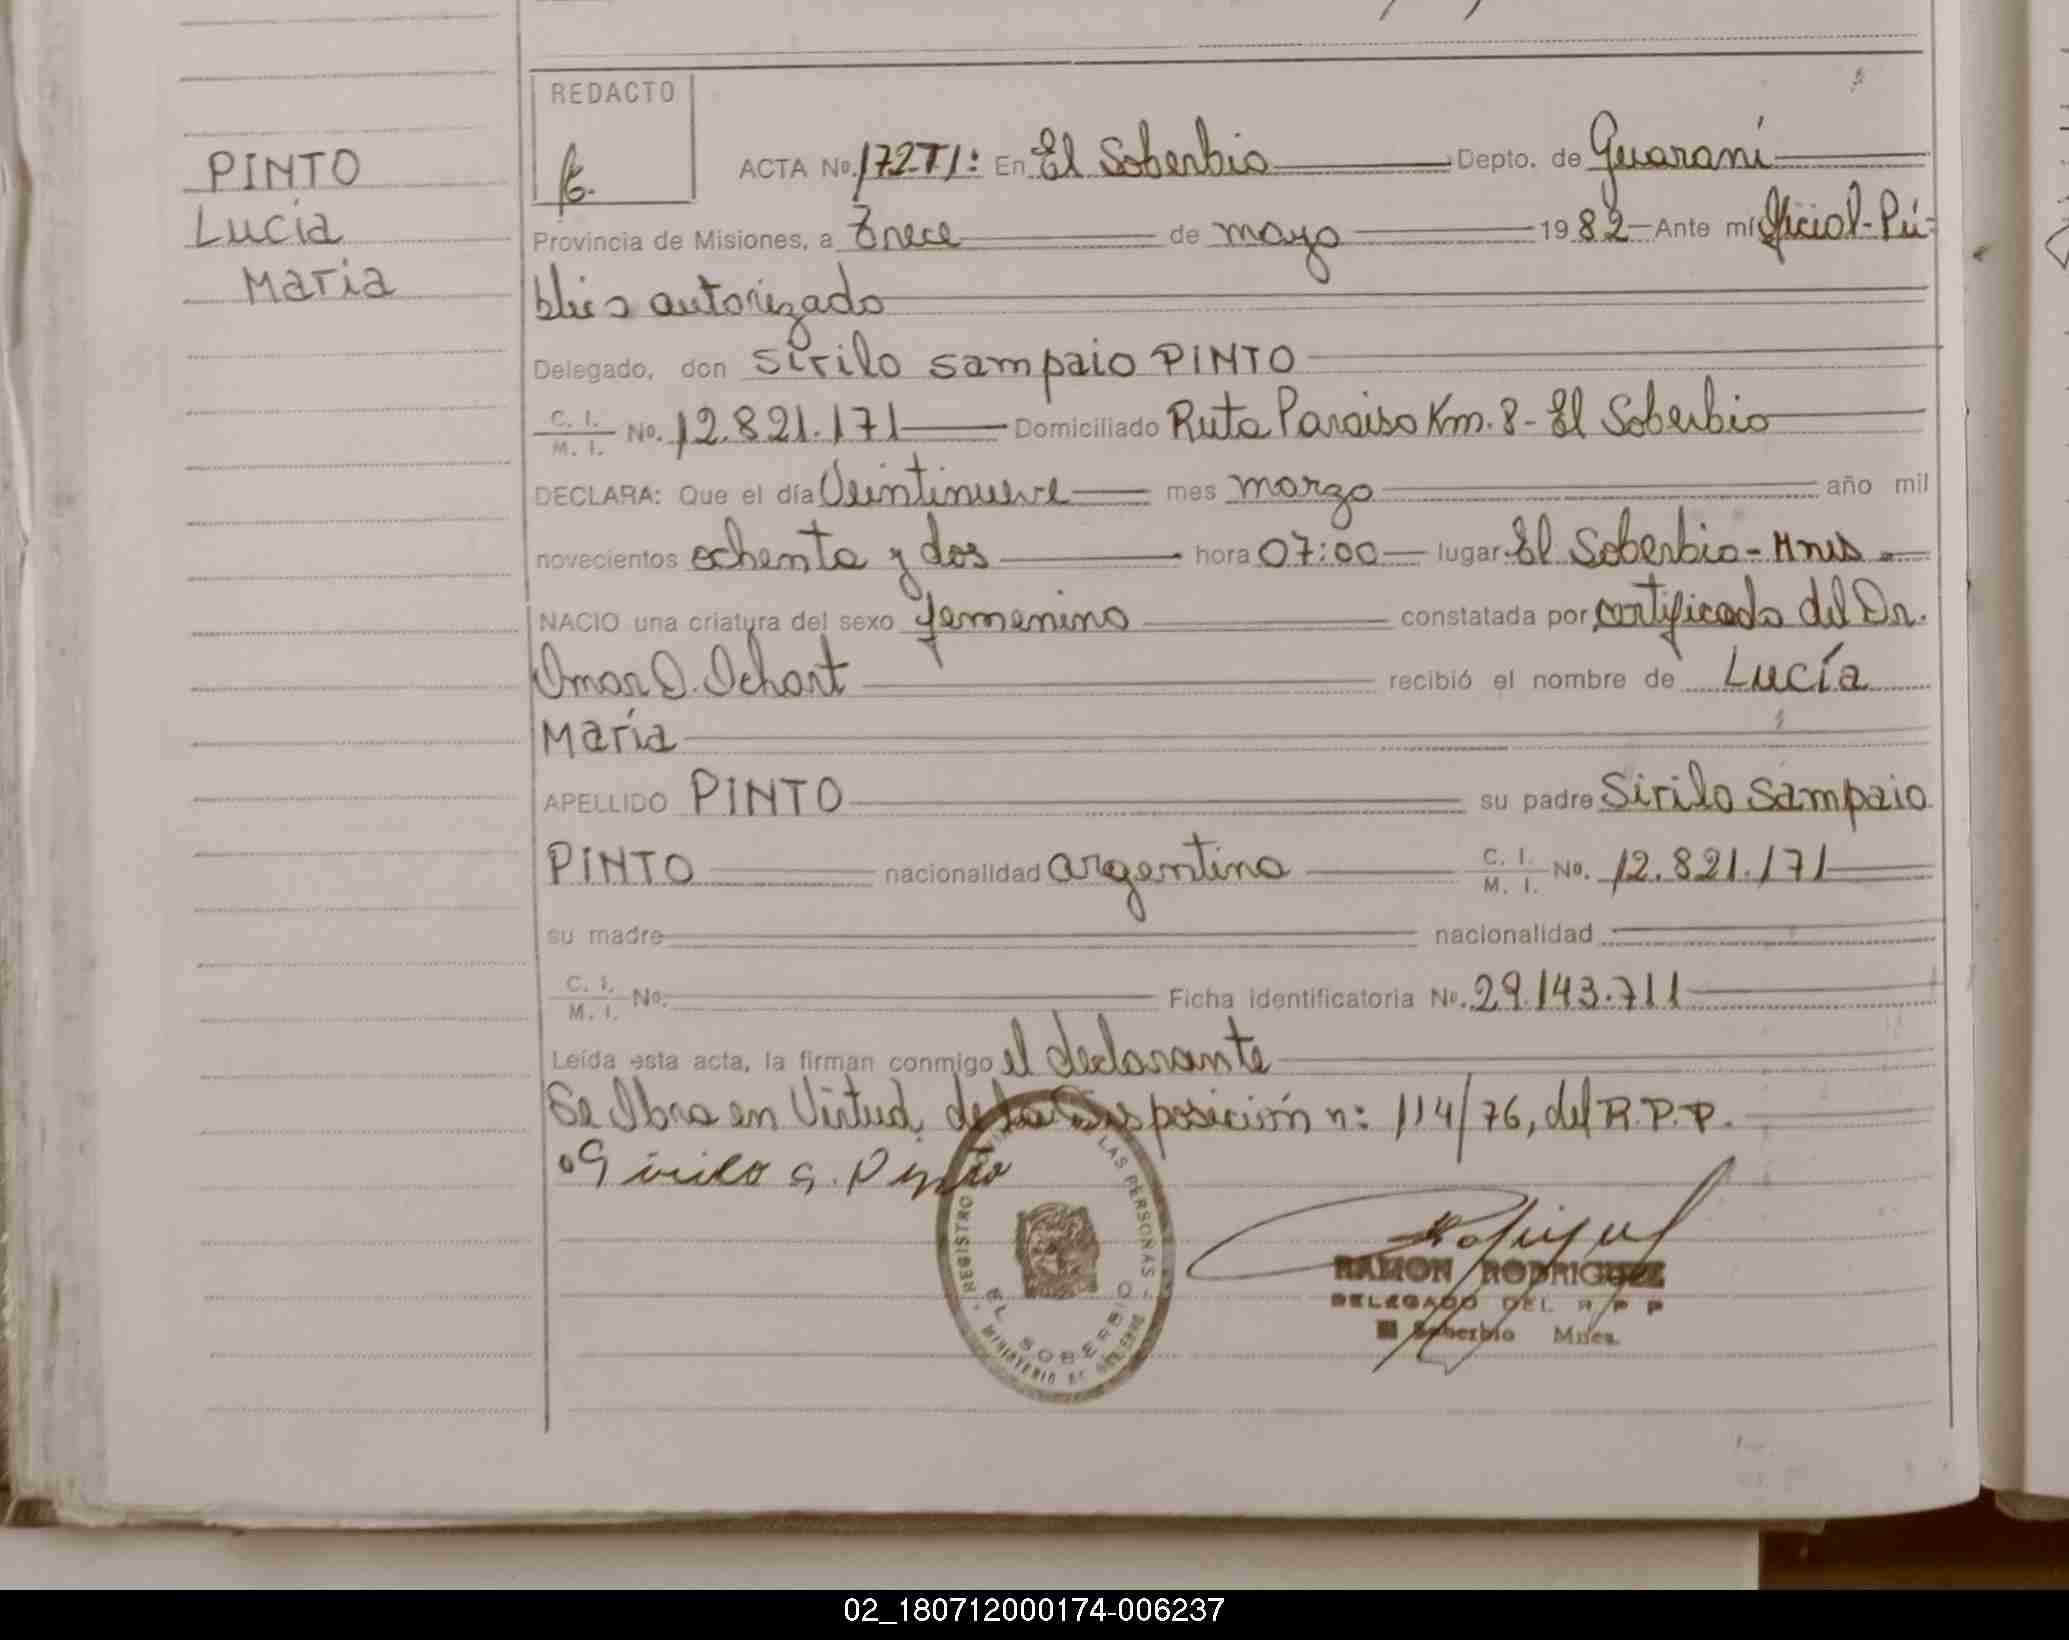 REDACTO
PINTO
Lucía
María
ACTA No. 172TI: En El Soberbio Depto. de Guaraní
Provincia de Misiones, a Trece de mayo 1982 Ante mí Oficial-Pú-
blico autorizado
Delegado, don Sirilo Sampaio PINTO
C. I. M. I. No. 12.821.171 Domiciliado Ruta Paraiso Km. 8- El Soberbio
DECLARA: Que el día Veintinueve mes marzo año mil
novecientos ochenta y dos hora 07:00 lugar El Soberbio - Mnes
NACIO una criatura del sexo femenino constatada por certificado del Dr.
Omar O. Ochart recibió el nombre de Lucía
María
APELLIDO PINTO su padre Sirilo Sampaio
PINTO nacionalidad argentina C. I. M. I. No. 12.821.171
su madre nacionalidad
C. I. M. I. No. Ficha identificatoria No. 29.143.711
Leída esta acta, la firman conmigo el declarante
Se Obra en Virtud de la Disposición n: 114/76, del R.P.P.
REGISTRO LAS PERSONAS
EL SOBERBIO
MINISTERIO DE GOBIERNO
RAMON RODRIGUEZ
DELEGADO DEL R P P
El Soberbio Mnes.
02_180712000174-006237